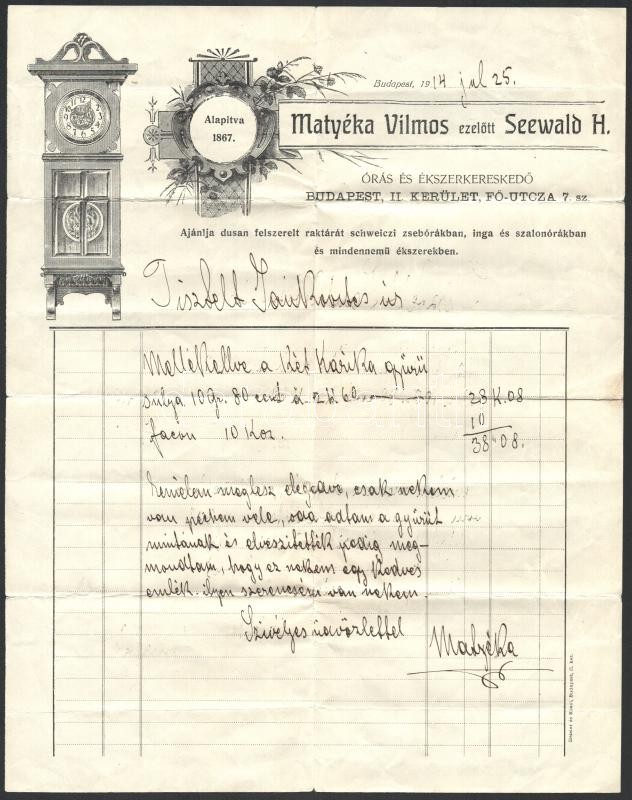 Budapest, 1914 jul 25.
Alapitva
1867.
Matyéka Vilmos ezelőtt Seewald H.
ÓRÁS ÉS ÉKSZERKERESKEDŐ
BUDAPEST, II. KERÜLET, FŐ-UTCZA 7. sz.
Ajánlja dusan felszerelt raktárát schweiczi zsebórákban, inga és szalonórákban
és mindennemű ékszerekben.
Tisztelt Jankovits úr
Mellékelve a két karika gyürü
sulya 10 gr. 80 cent á 2 K 60 23 K. 08
facon 10 Kor. 10
38 " 08.
Remélem meglesz elegedve, csak nekem
van vele, oda adtam a gyürüt
mintának és elveszitették pedig meg-
mondtam, hogy ez nekem egy kedves
emlék. ilyen szerencsém van nekem.
Szivélyes üdvözlettel
Matyéka